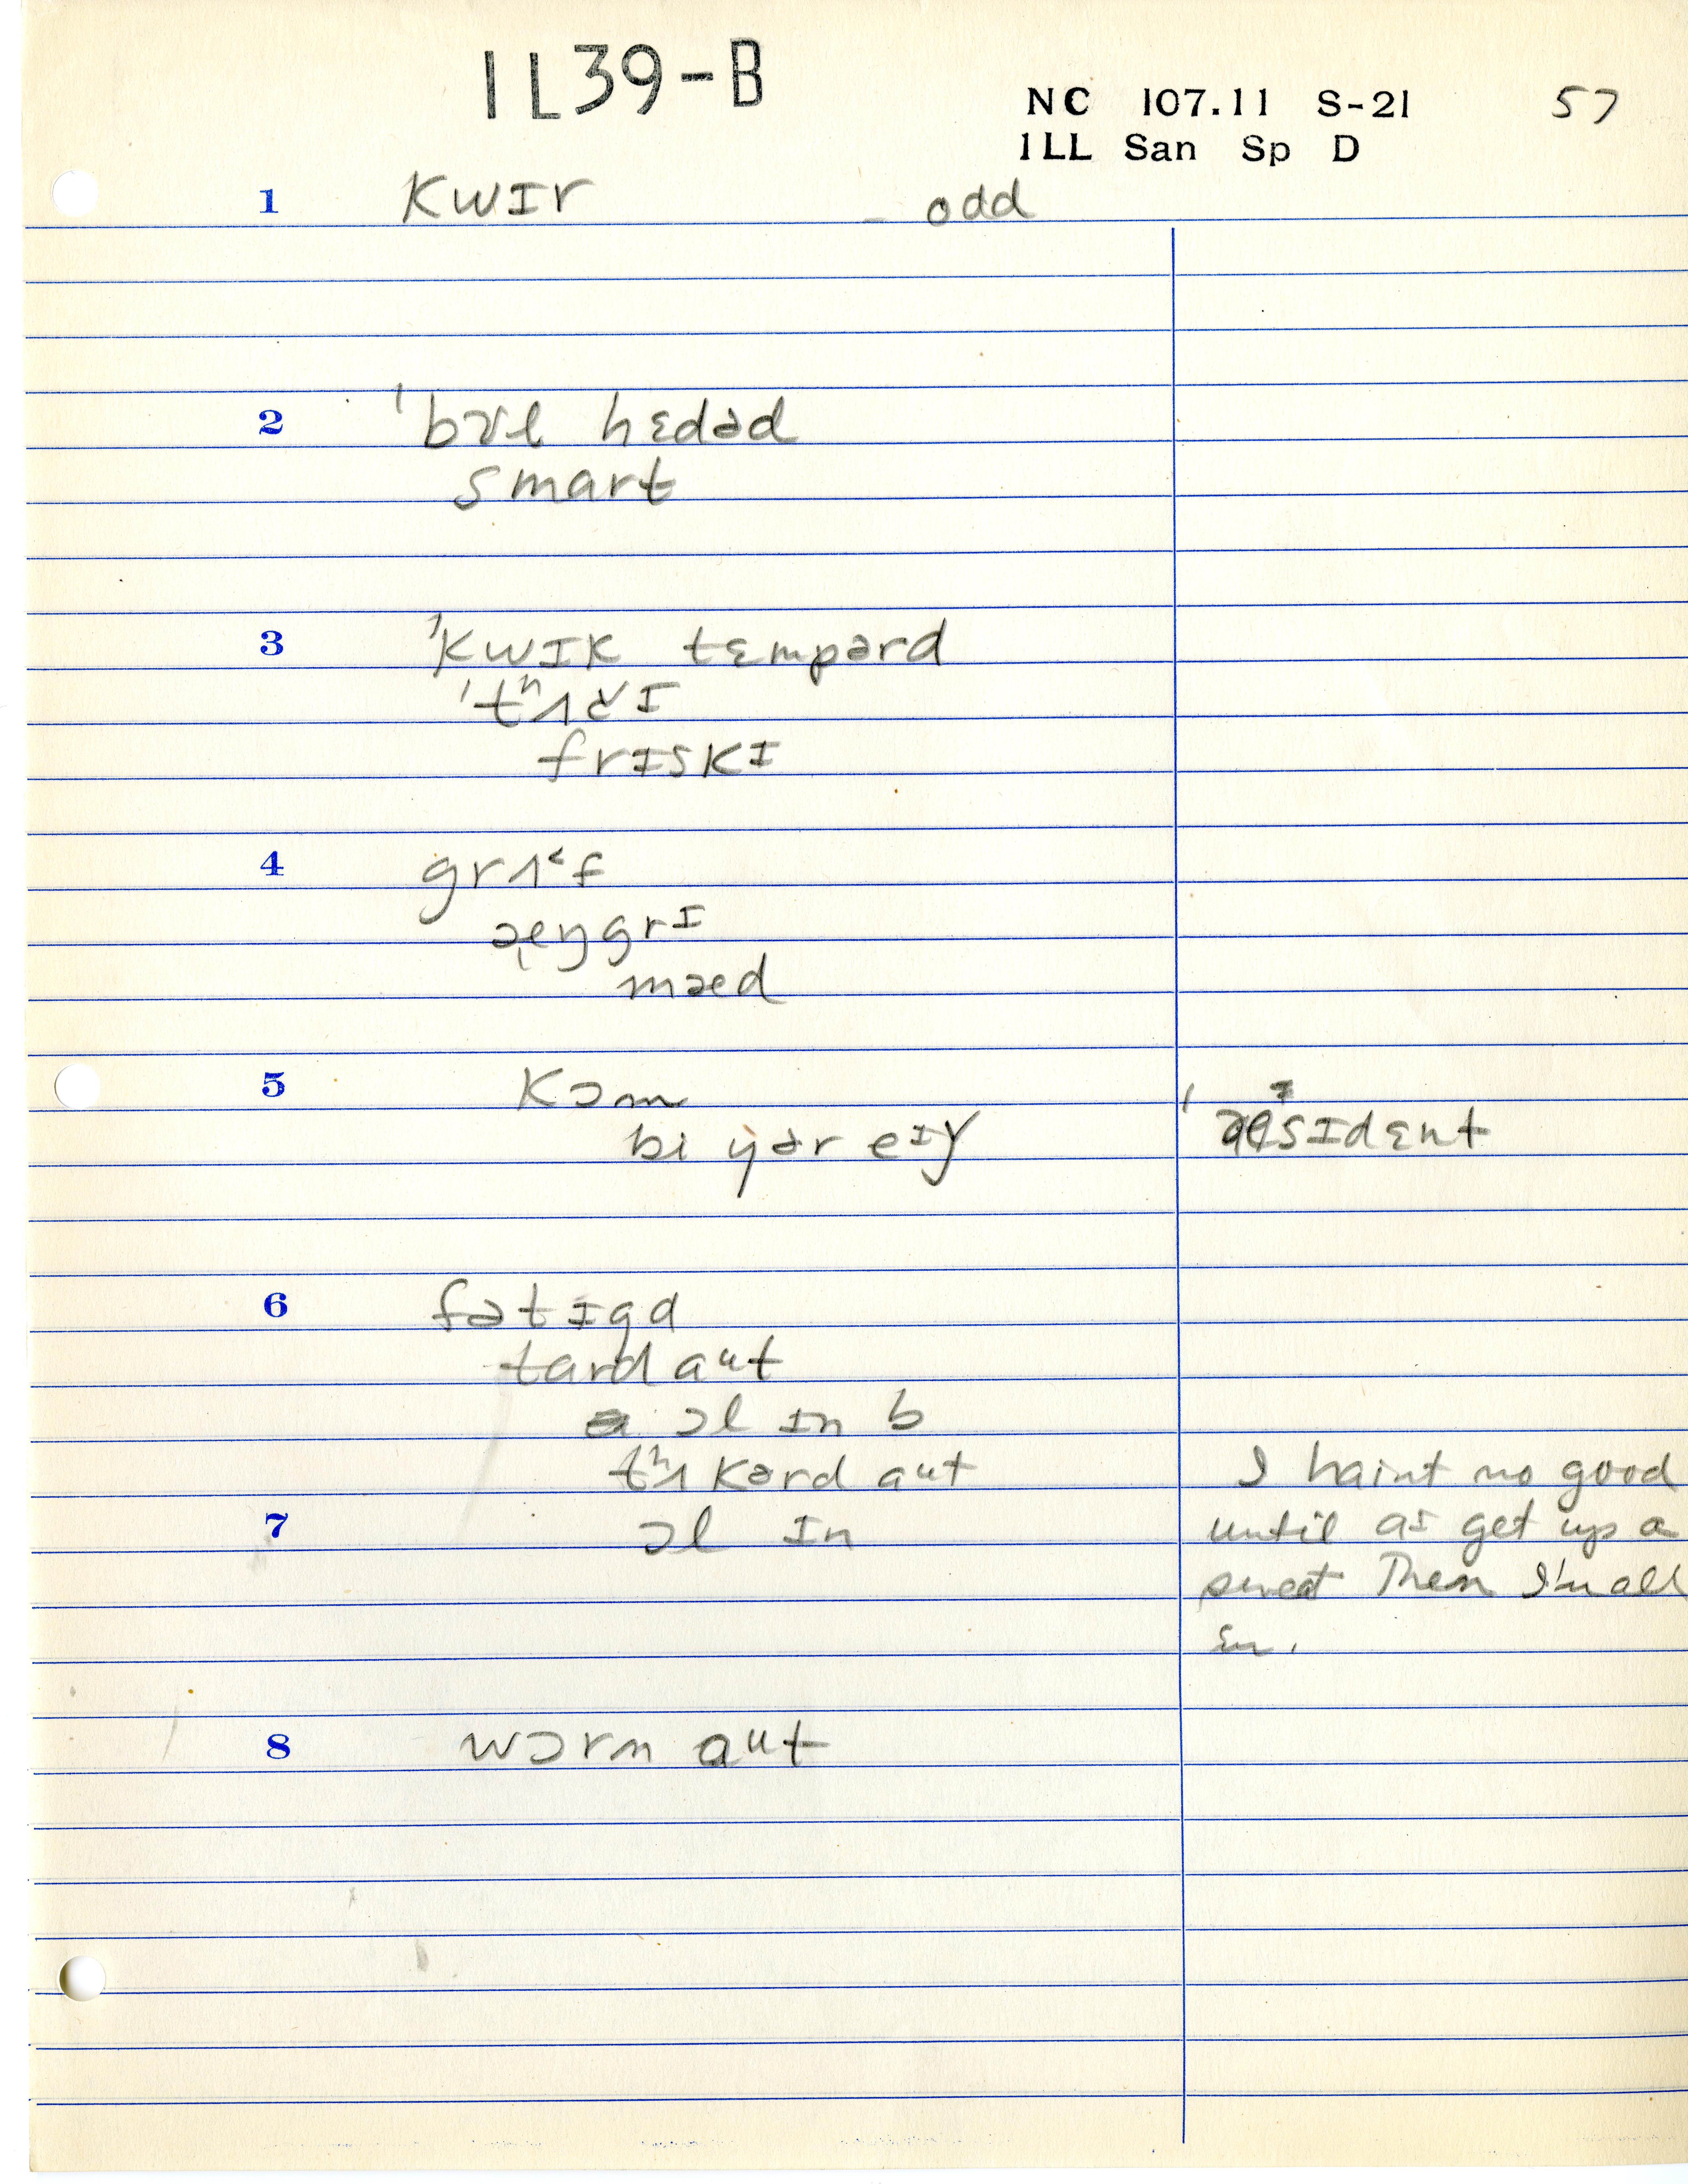 IL39-B
NC 107.11 S-21 57
ILL San Sp D
1 kwɪr - odd
2 ˈbʊl hɛdəd
smart
3 ˈkwɪk tɛmpərd
ˈtʰʌčɪ
frɪskɪ
4 grʌ˂f
æŋgrɪ
mæd
5 Kəm
bi yər eɪy ˈæsɪdɛnt
6 fətigd
tard aᵘt
ɔl ɪn b
tʰʌkərd aᵘt I haint no good
7 ɔl ɪn until aɪ get up a
sweat Then I'm all
in.
8 wɔrn aᵘt